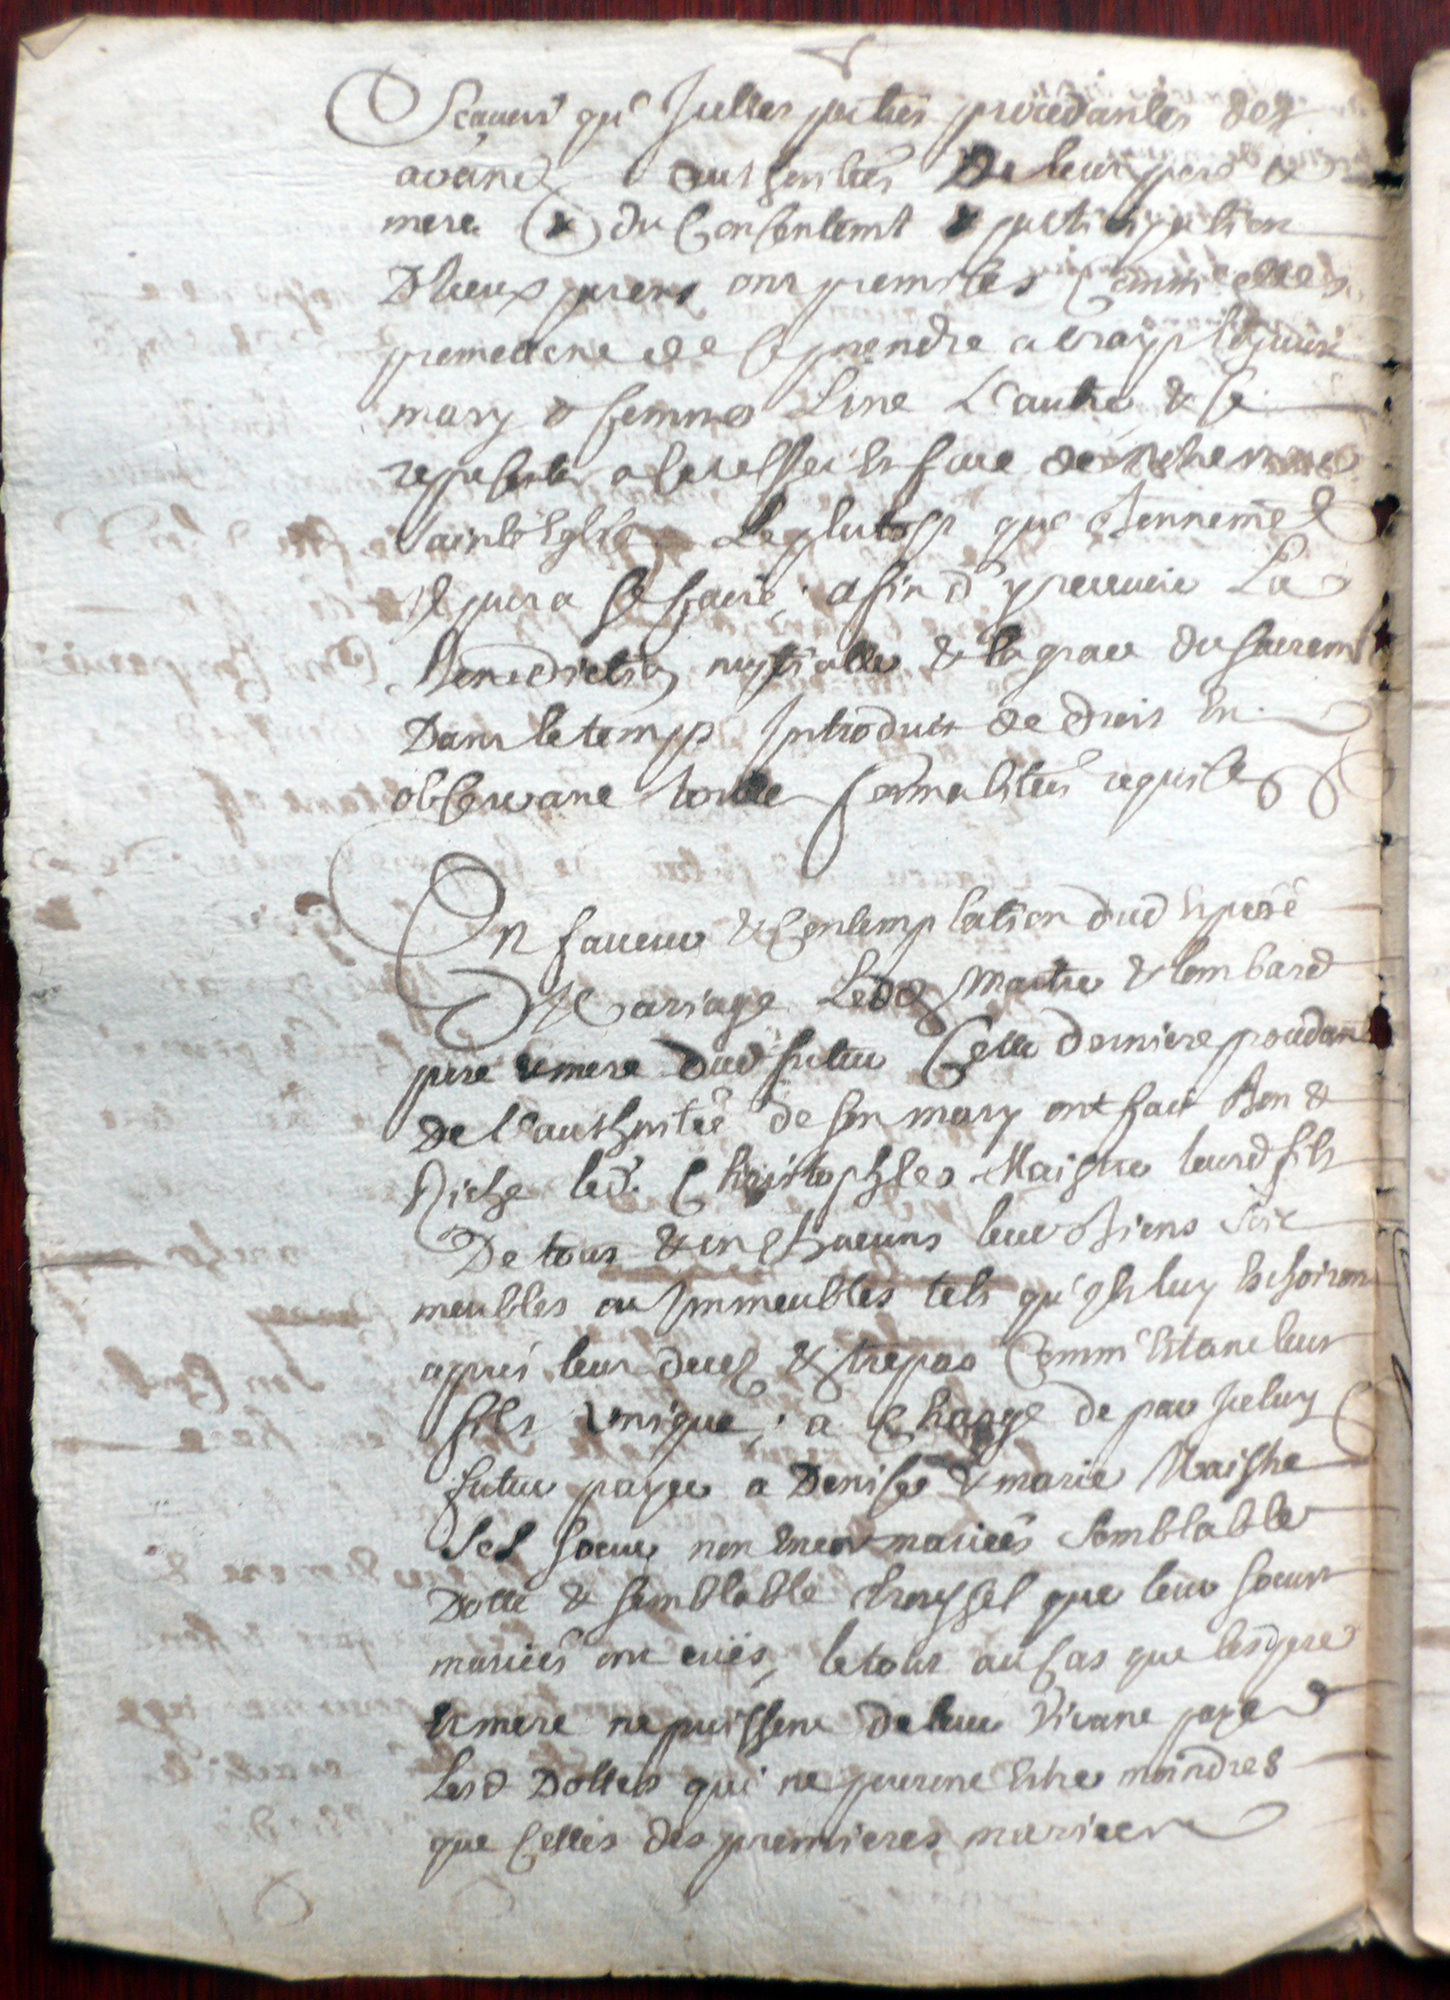 Scavoir qu' Icelles parties procedantes des
avand authoritées De leurs pere &
mere & du Consentemt & participation
D'Iceux perens ont premises Comm' elles
premettent de se prendre a vrays loyaux
mary & femme L'une L'autre & se
represente a ce en face de nostre mere
sainte Eglise Le plustost que bonnemt
se pura se faire, afin d'y recevoir La
Benediction nuptialle & la grace du sacremt
Dans le temps Introduit de droit En
observant toutte formalitées requise
En faveur & Contemplation dud Esperé
Mariage Lesd Maitre & lombard
pere & mere dud futur Celle derniere procedant
de l'authoritée de son mary ont fait Bon &
Riche led. Christophles Maistre leurd fils
De tous & un Chacuns leur biens soit
meubles ou Immeubles tels qu'Ils luy Echoiront
aprés leur decez & trepas Comm' Estant leur
fils unique, a Charge de par Iceluy
futur payer a Denise & marie Maistre
ses soeur non Encor mariées semblable
Dotte & semblable troussel que leur soeurs
mariées ont eües, le tout au Cas que lesd pere
& mere ne puissent de leur Vivant payer
Lesd Dottes qui ne pouront Estre moindres
que Celles des premieres mariees